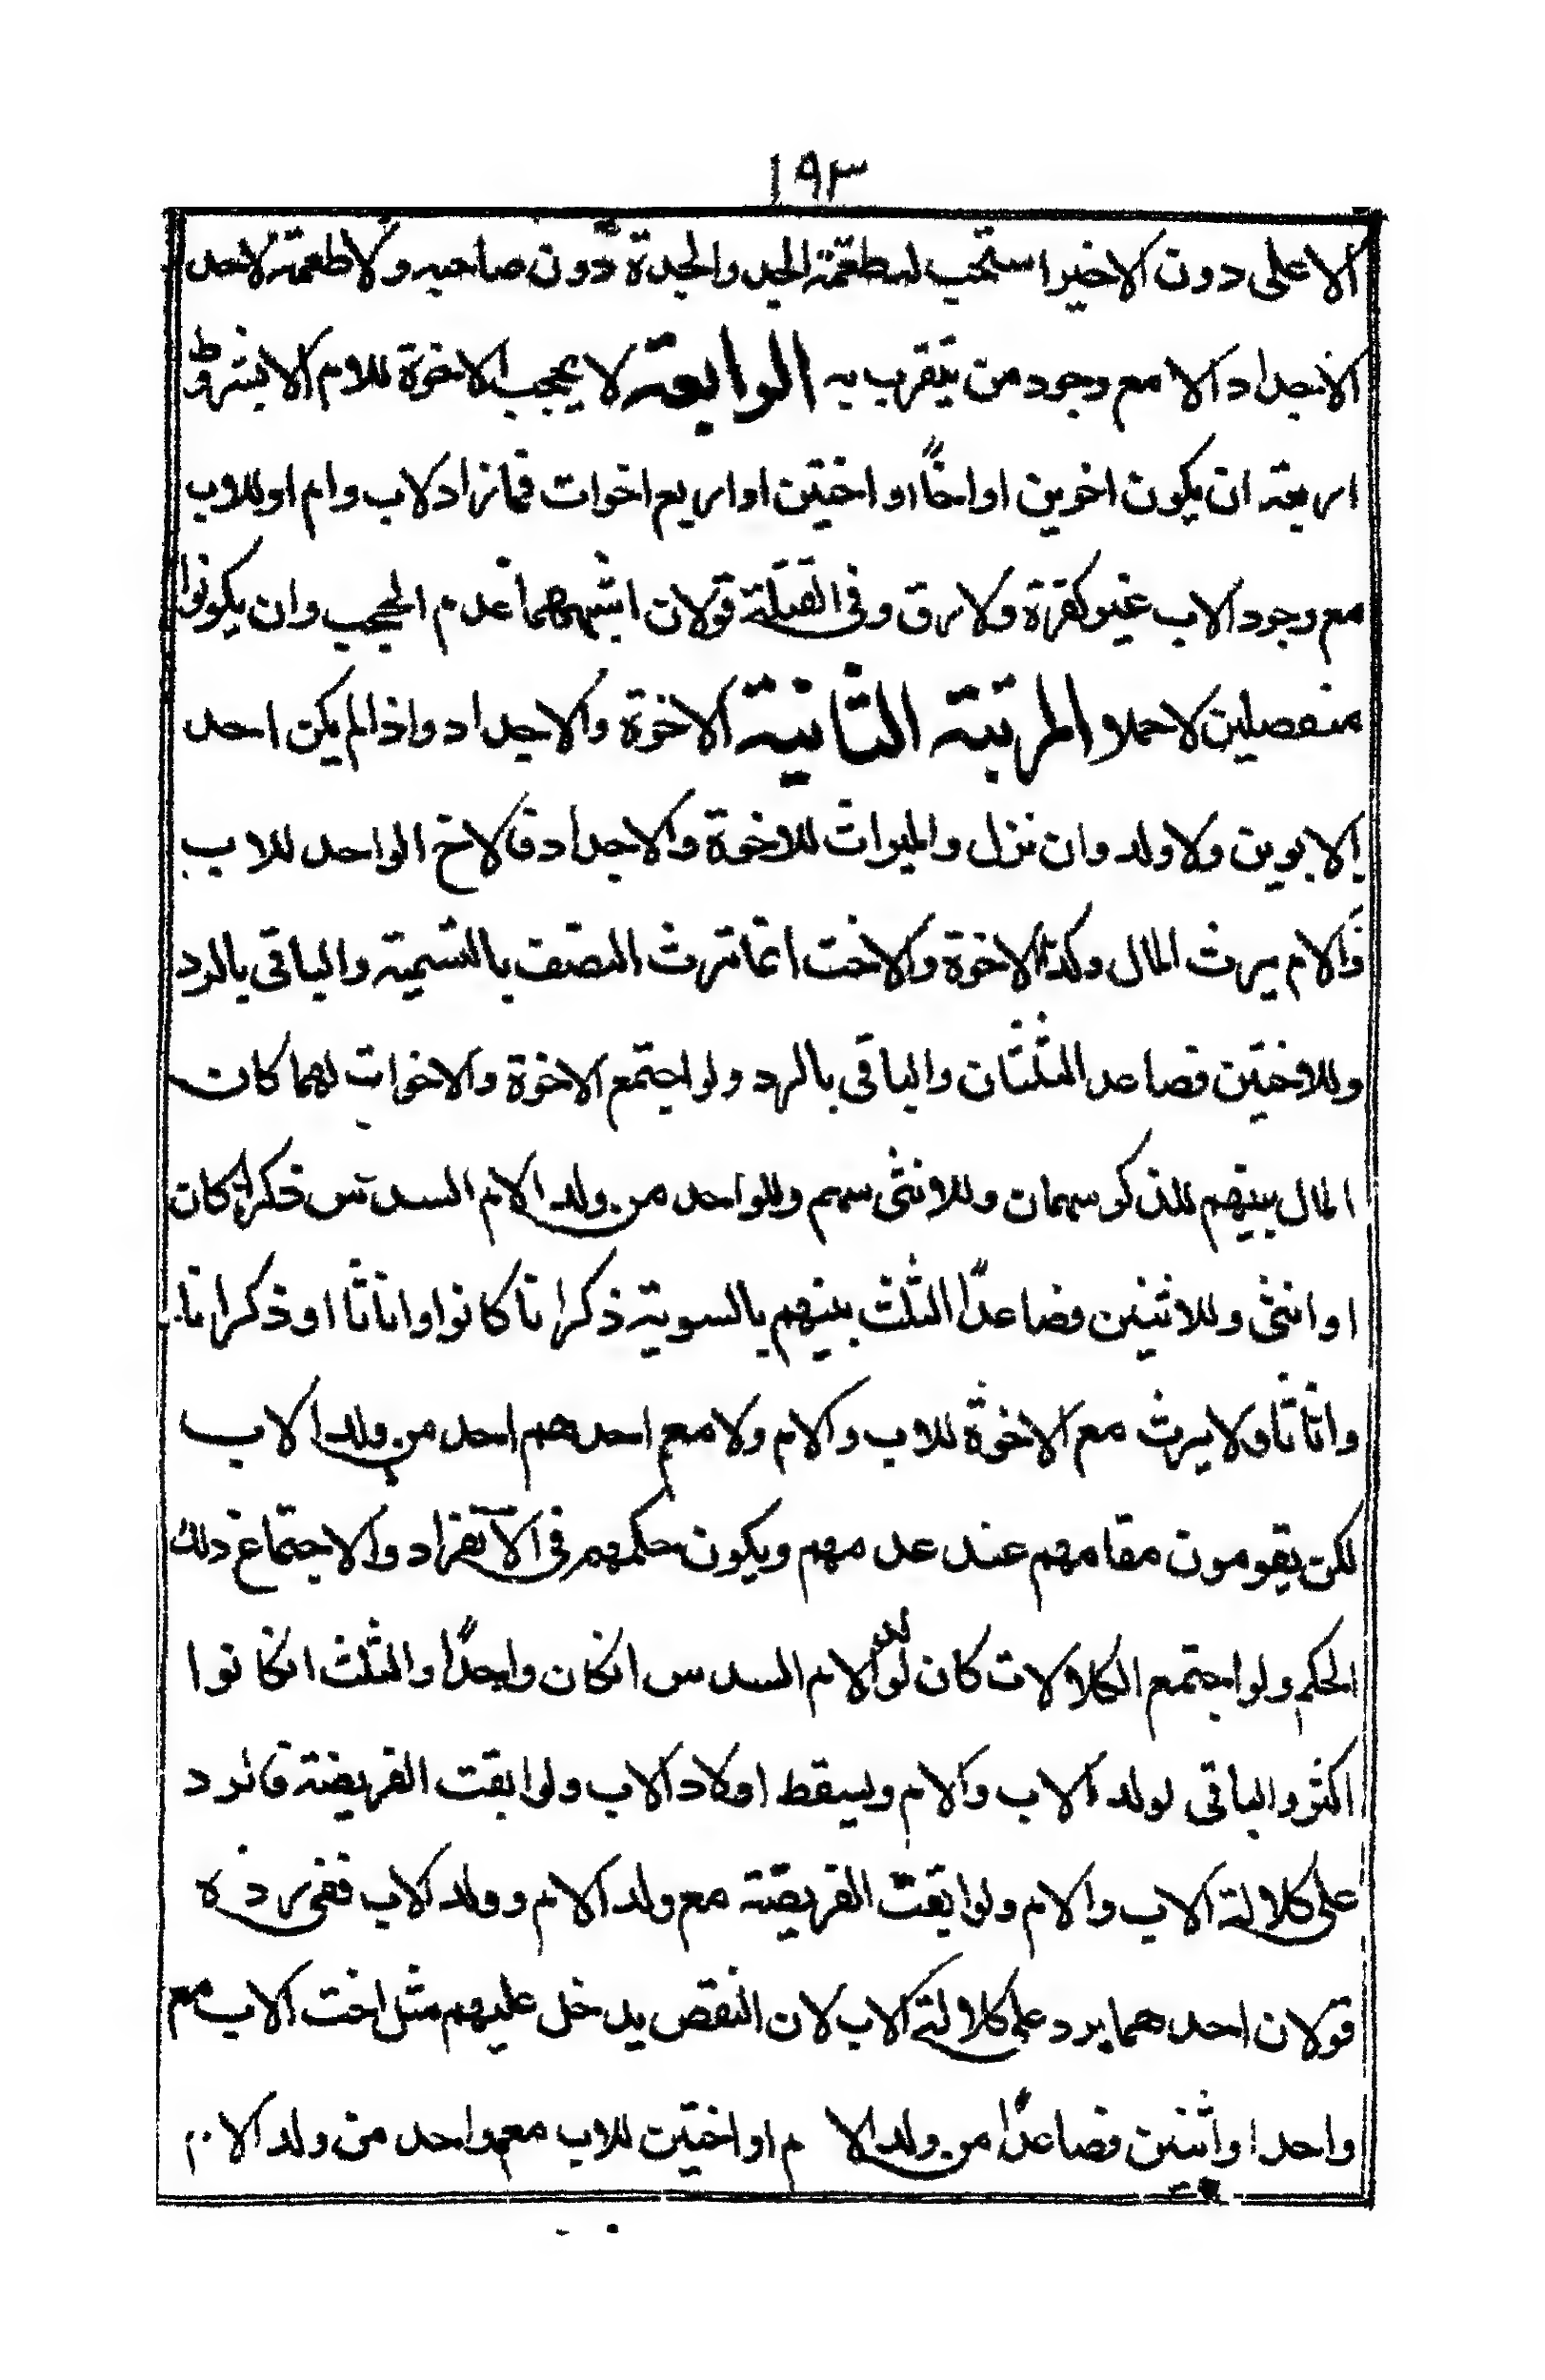 ١٩٣
الاعلى دون الاخير استحب له طعمة الجد والجدة دون صاحبه ولا طعمة لاحد
الاجداد الا مع وجود من يتقرب به الرابعة لا يحجب الاخوة للام الا بشروط
اربعة ان يكون اخوين او اخاً او اختين او اربع اخوات فما زاد لاب وام او للاب
مع وجود الاب غير كفرة ولا رق وفي القتلة قولان اشبههما عدم الحجب وان يكونوا
منفصلين لا حملا المرتبة الثانية الاخوة والاجداد واذا لم يكن احد
الابوين ولا ولد وان نزل والميراث للاخوة والاجداد فالاخ الواحد للاب
والام يرث المال وكذا الاخوة والاخت انما ترث النصف بالتسمية والباقي بالرد
وللاختين فصاعد الثلثان والباقي بالرد ولو اجتمع الاخوة والاخوات لهما كان
المال بينهم للذكر سهمان وللانثى سهم وللواحد من ولد الام السدس ذكرا كان
او انثى وللاثنين فصاعداً الثلث بينهم بالسوية ذكرانا كانوا او اناثا او ذكرانا
واناثا ولا يرث مع الاخوة للاب والام ولا مع احدهم احد من ولد الاب
لكن يقومون مقامهم عند عدمهم ويكون حكمهم في الانفراد والاجتماع ذلك
الحكم ولو اجتمع الكلالات كان لولد الام السدس انكان واحداً والثلث انكانوا
اكثر والباقي لولد الاب والام ويسقط اولاد الاب ولو ابقت الفريضة فالرد
على كلالة الاب والام ولو ابقت الفريضة مع ولد الام وولد الاب ففي رده
قولان احدهما يرد على كلالة الاب لان النقص يدخل عليهم مثل اخت الاب مع
واحد او اثنين فصاعداً من ولد الام او اختين للاب مع واحد من ولد الام